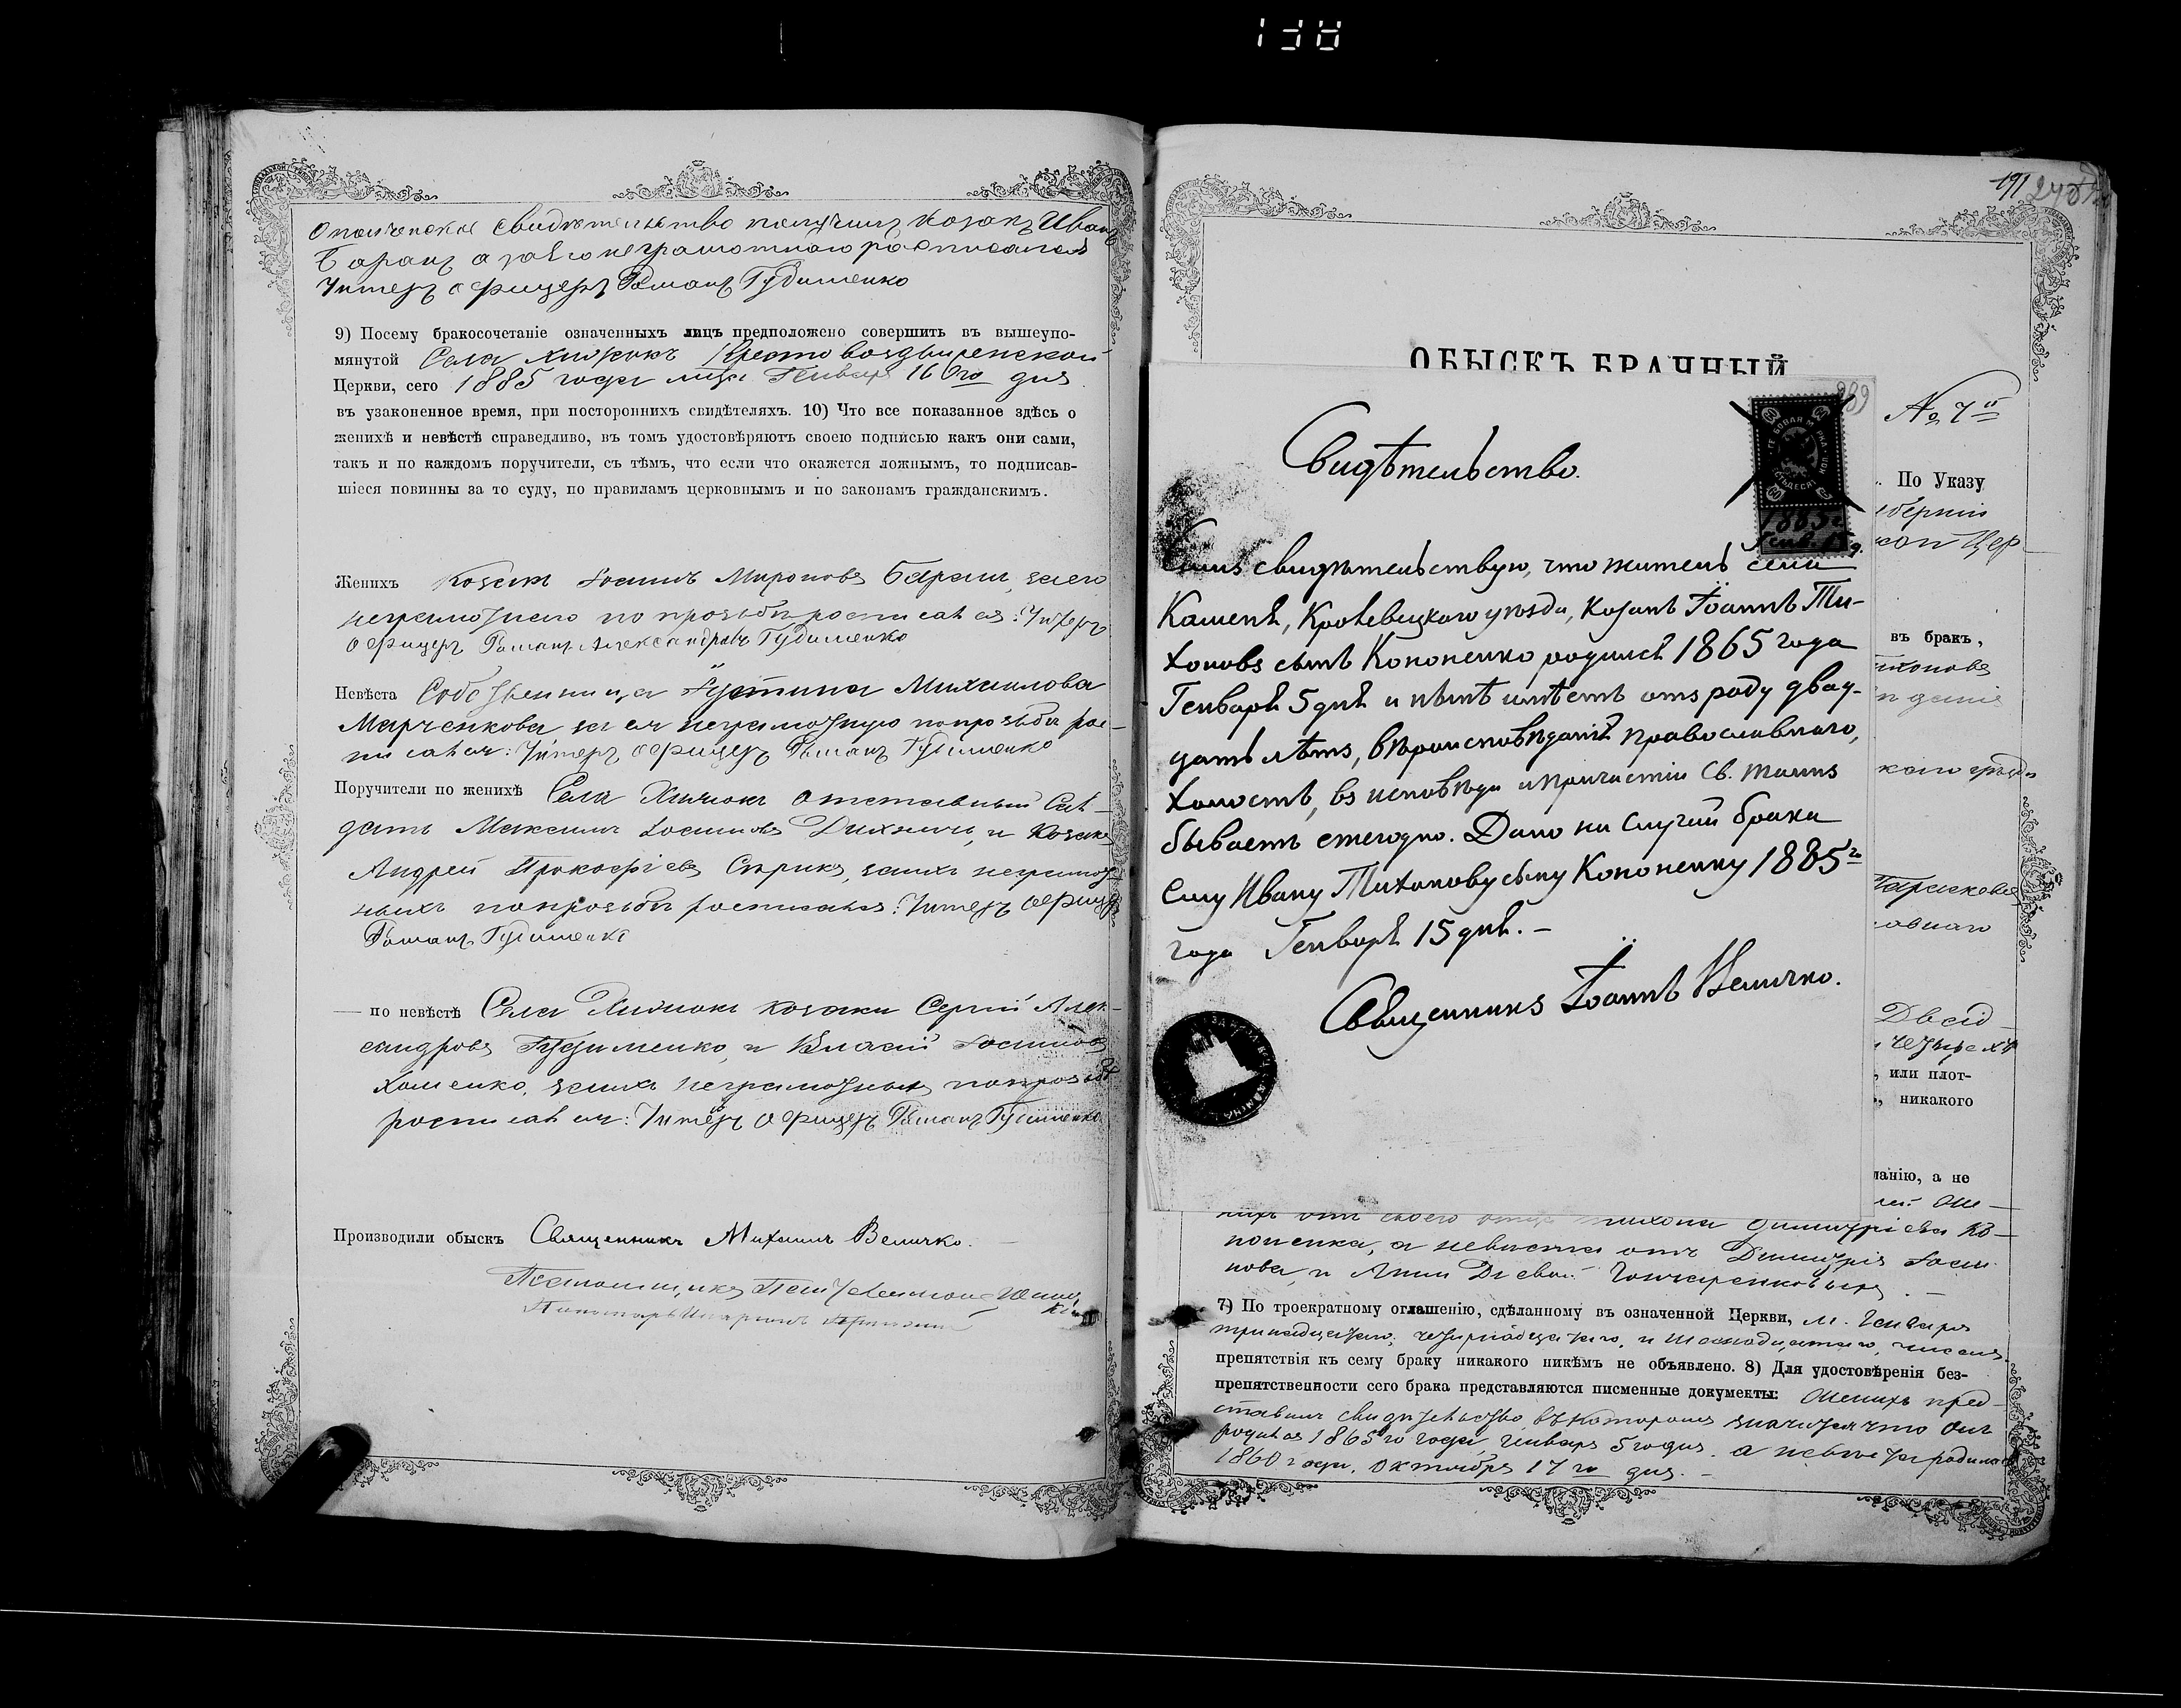 138
Ополченское свидѣтельство получилъ козакъ Иванъ
Баранъ а за его неграмотного росписался
Унтеръ офицеръ Романъ Гудименко
9) Посему бракосочетаніе означенныхъ лицъ предположено совершить въ вышеупо-
мянутой Села Хижокъ Крестовоздвиженской
Церкви, сего 1885 года мца Генваря 16го дня
въ узаконенное время, при постороннихъ свидѣтеляхъ. 10) Что все показанное здѣсь о
женихѣ и невѣстѣ справедливо, въ томъ удостовѣряютъ своею подписью какъ они сами,
такъ и по каждомъ поручители, съ тѣмъ, что если что окажется ложнымъ, то подписав-
шіеся повинны за то суду, по правиламъ церковнымъ и по законамъ гражданскимъ.
Женихъ Козакъ Іоаннъ Мироновъ Баранъ, заего
неграмотнаго по прозьбѣ росписался: Унтеръ
офицеръ Романъ Александровъ Гудименко
Невѣста Собственница Іустина Михаилова
Марченкова за ея неграмотную попрозьбѣ рос-
писался: Унтеръ офицеръ Романъ Гудименко
Поручители по женихѣ Села Хижокъ отставный Сол-
датъ Максимъ Іоанновъ и Козакъ
Андрей Прокофіевъ Сирикъ, заихъ неграмот
ныхъ попрозьбѣ росписался: Унтеръ офицеръ
Романъ Гудименко
— по невѣстѣ Села Хижокъ козаки Сергій Алек-
сандровъ Гудименко, и Власій Іоанновъ
Хоменко, заихъ неграмотныхъ попрозьбѣ
росписался: Унтеръ офицеръ Романъ Гудименко
Производили обыскъ Священникъ Михаилъ Величко.
Псаломщикъ
191
ОБЫСКЪ БРАЧНЫЙ
№ 7й
По Указу
въ бракъ,
или плот-
никакого
ланію, а не
Свидѣтельство.
1885 г.
Генв. 15 д.
Симъ свидѣтельствую, что житель села
Каменя, Кролевецкого уѣзда, Козакъ Іоаннъ Ти-
хоновъ сынъ Кононенко родился 1865 года
Генваря 5 дня и нынѣ имѣетъ отъ роду двад-
цать лѣтъ, вѣроисповѣданія православнаго,
холостъ, въ исповѣди и причастіи Св. таинъ
бываетъ ежегодно. Дано на случай брака
ему Ивану Тихонову сыну Кононенку 1885го
года Генваря 15 дня. –
Священникъ Іоаннъ Величко.
нихъ отъ своего отца Тихона Димитріева Ко-
поненка, а невѣста отъ Димитрія Іоан
нова, и Анны Гончаренковыхъ. –
7) По троекратному оглашенію, сдѣланному въ означенной Церкви, м. Генваря
тринадцатаго, четырнадцатаго, и шеснадцатаго, чиселъ,
препятствія къ сему браку никакого никѣмъ не объявлено. 8) Для удостовѣренія без-
препятственности сего брака представляются писменные документы: Женихъ пред-
ставилъ свидѣтельство въ которомъ значится что онъ
родился 1865го года, Генваря 5 го дня. а невѣста родилась
1860 года, Октября 17 го дня. –